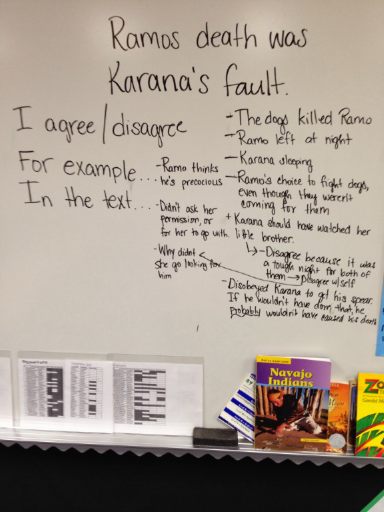 Ramos death was
Karana's fault.
I agree/disagree
For example...
In the text....
- Ramo thinks
he's precocious
- Didn't ask her
permission, or
for her to go with.
- Why didn't
she go looking for
him
- The dogs killed Ramo
- Ramo left at night
- Karana sleeping
- Ramo's choice to fight dogs,
even though they weren't
coming for them
+ Karana should have watched her
little brother.
↳ - Disagree because it was
a tough night for both of
them → Disagree w/self
- Disobeyed Karana to get his spear.
If he wouldn't have done that, he
probably wouldn't have caused his death
Navajo
Indians